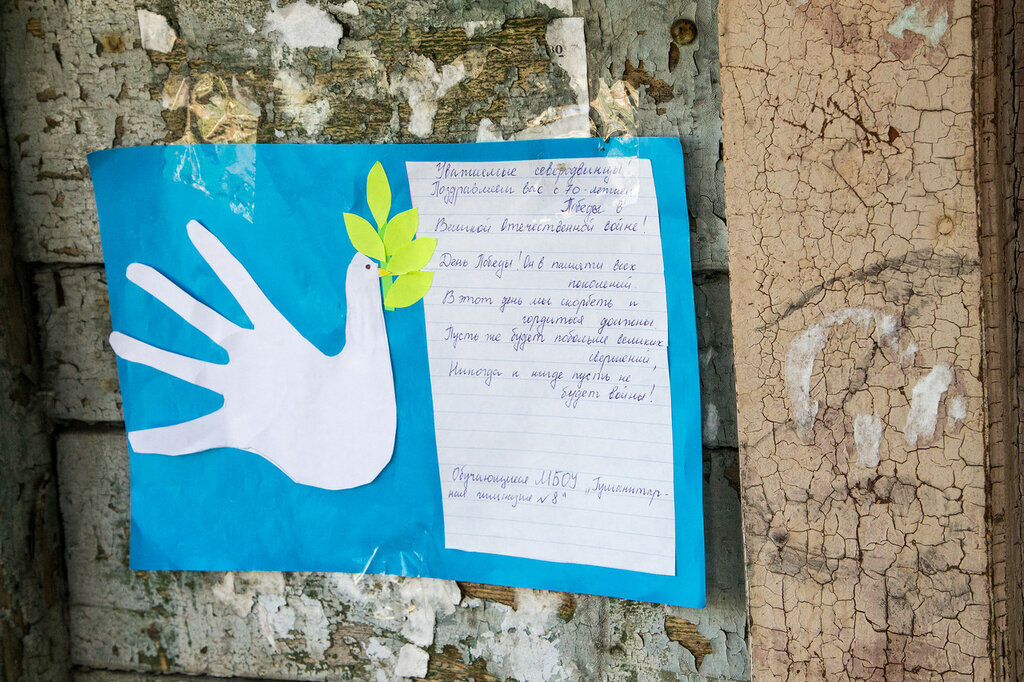 Уважаемые северодвинцы!
Поздравляем вас с 70-летием
Победы в
Великой Отечественной войне!
День Победы! Он в памяти всех
поколений.
В этот день мы скорбеть и
гордиться должны
Пусть же будет побольше великих
свершений,
Никогда и нигде пусть не
будет войны!
Обучающиеся МБОУ „Гуманитар-
ная гимназия №8"